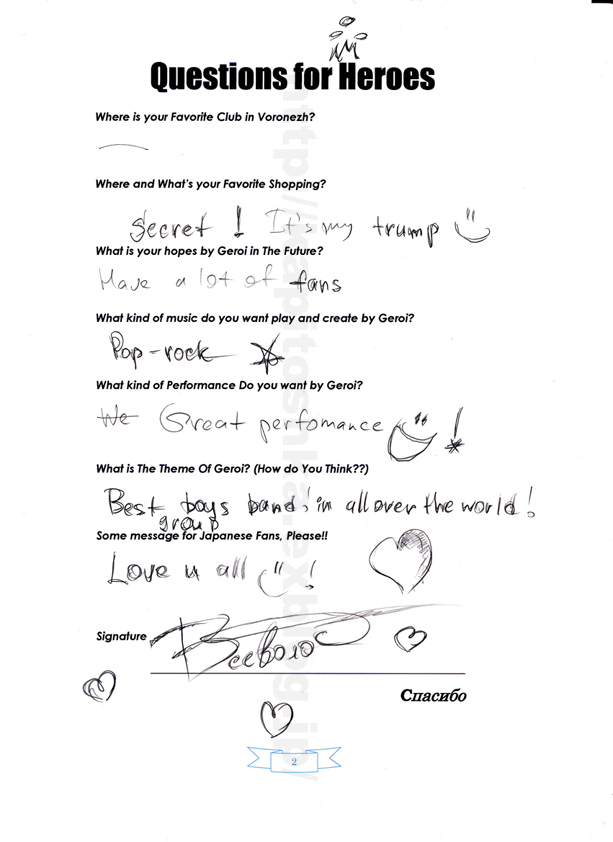 Questions for Heroes
Where is your Favorite Club in Voronezh?
Where and What's your Favorite Shopping?
Secret ! It's my trump
What is your hopes by Geroi in The Future?
Have a lot of fans
What kind of music do you want play and create by Geroi?
Pop-rock
What kind of Performance Do you want by Geroi?
We Great perfomance !
What is The Theme Of Geroi? (How do You Think??)
Best boys band! in all over the world!
group
Some message for Japanese Fans, Please!!
Love u all !
Signature Всеволод
Спасибо
2